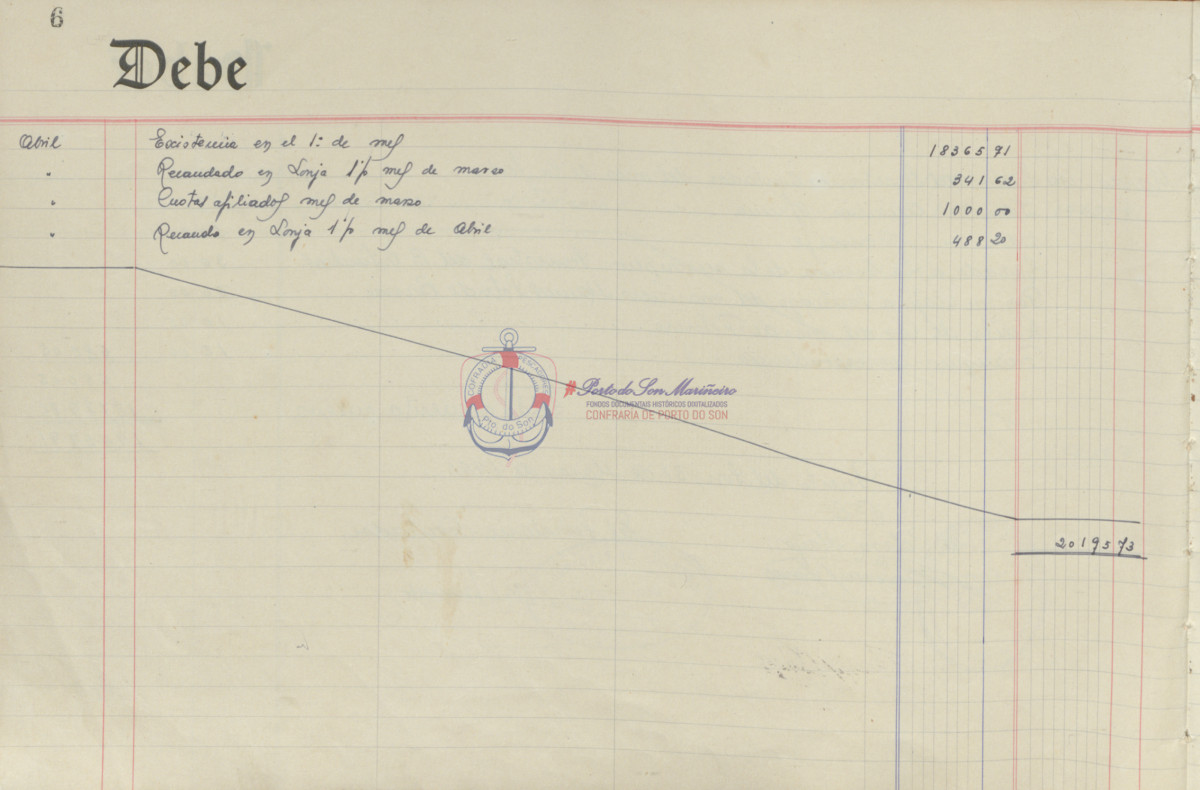 6
Debe
Abril Existencia en el 1º de mes 18365 71
" Recaudado en Lonja 1% mes de marzo 341 62
" Cuotas afiliados mes de marzo 1000 00
" Recaudo en Lonja 1% mes de Abril 488 20
COFRADIA PESCADORES
Pto. do Son
# Porto do Son Mariñeiro
FONDOS DOCUMENTAIS HISTÓRICOS DIXITALIZADOS
CONFRARÍA DE PORTO DO SON
20195 73